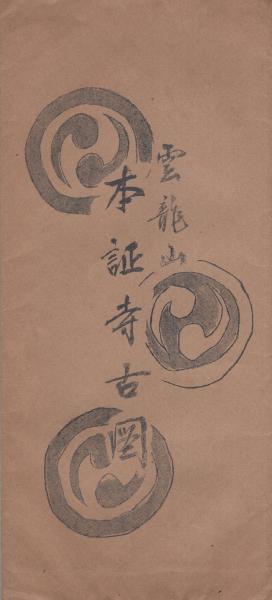 雲龍山
本証寺古圖